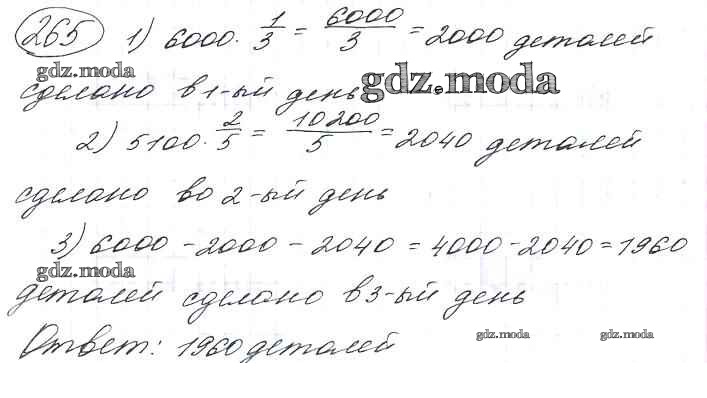 265 1) 6000 · 1/3 = 6000/3 = 2000 деталей
gdz.moda
сделано в 1-ый день gdz.moda
2) 5100 · 2/5 = 10200/5 = 2040 деталей
сделано во 2-ый день
3) 6000 - 2000 - 2040 = 4000 - 2040 = 1960
gdz.moda
деталей сделано в 3-ый день
Ответ: 1960 деталей
gdz.moda gdz.moda